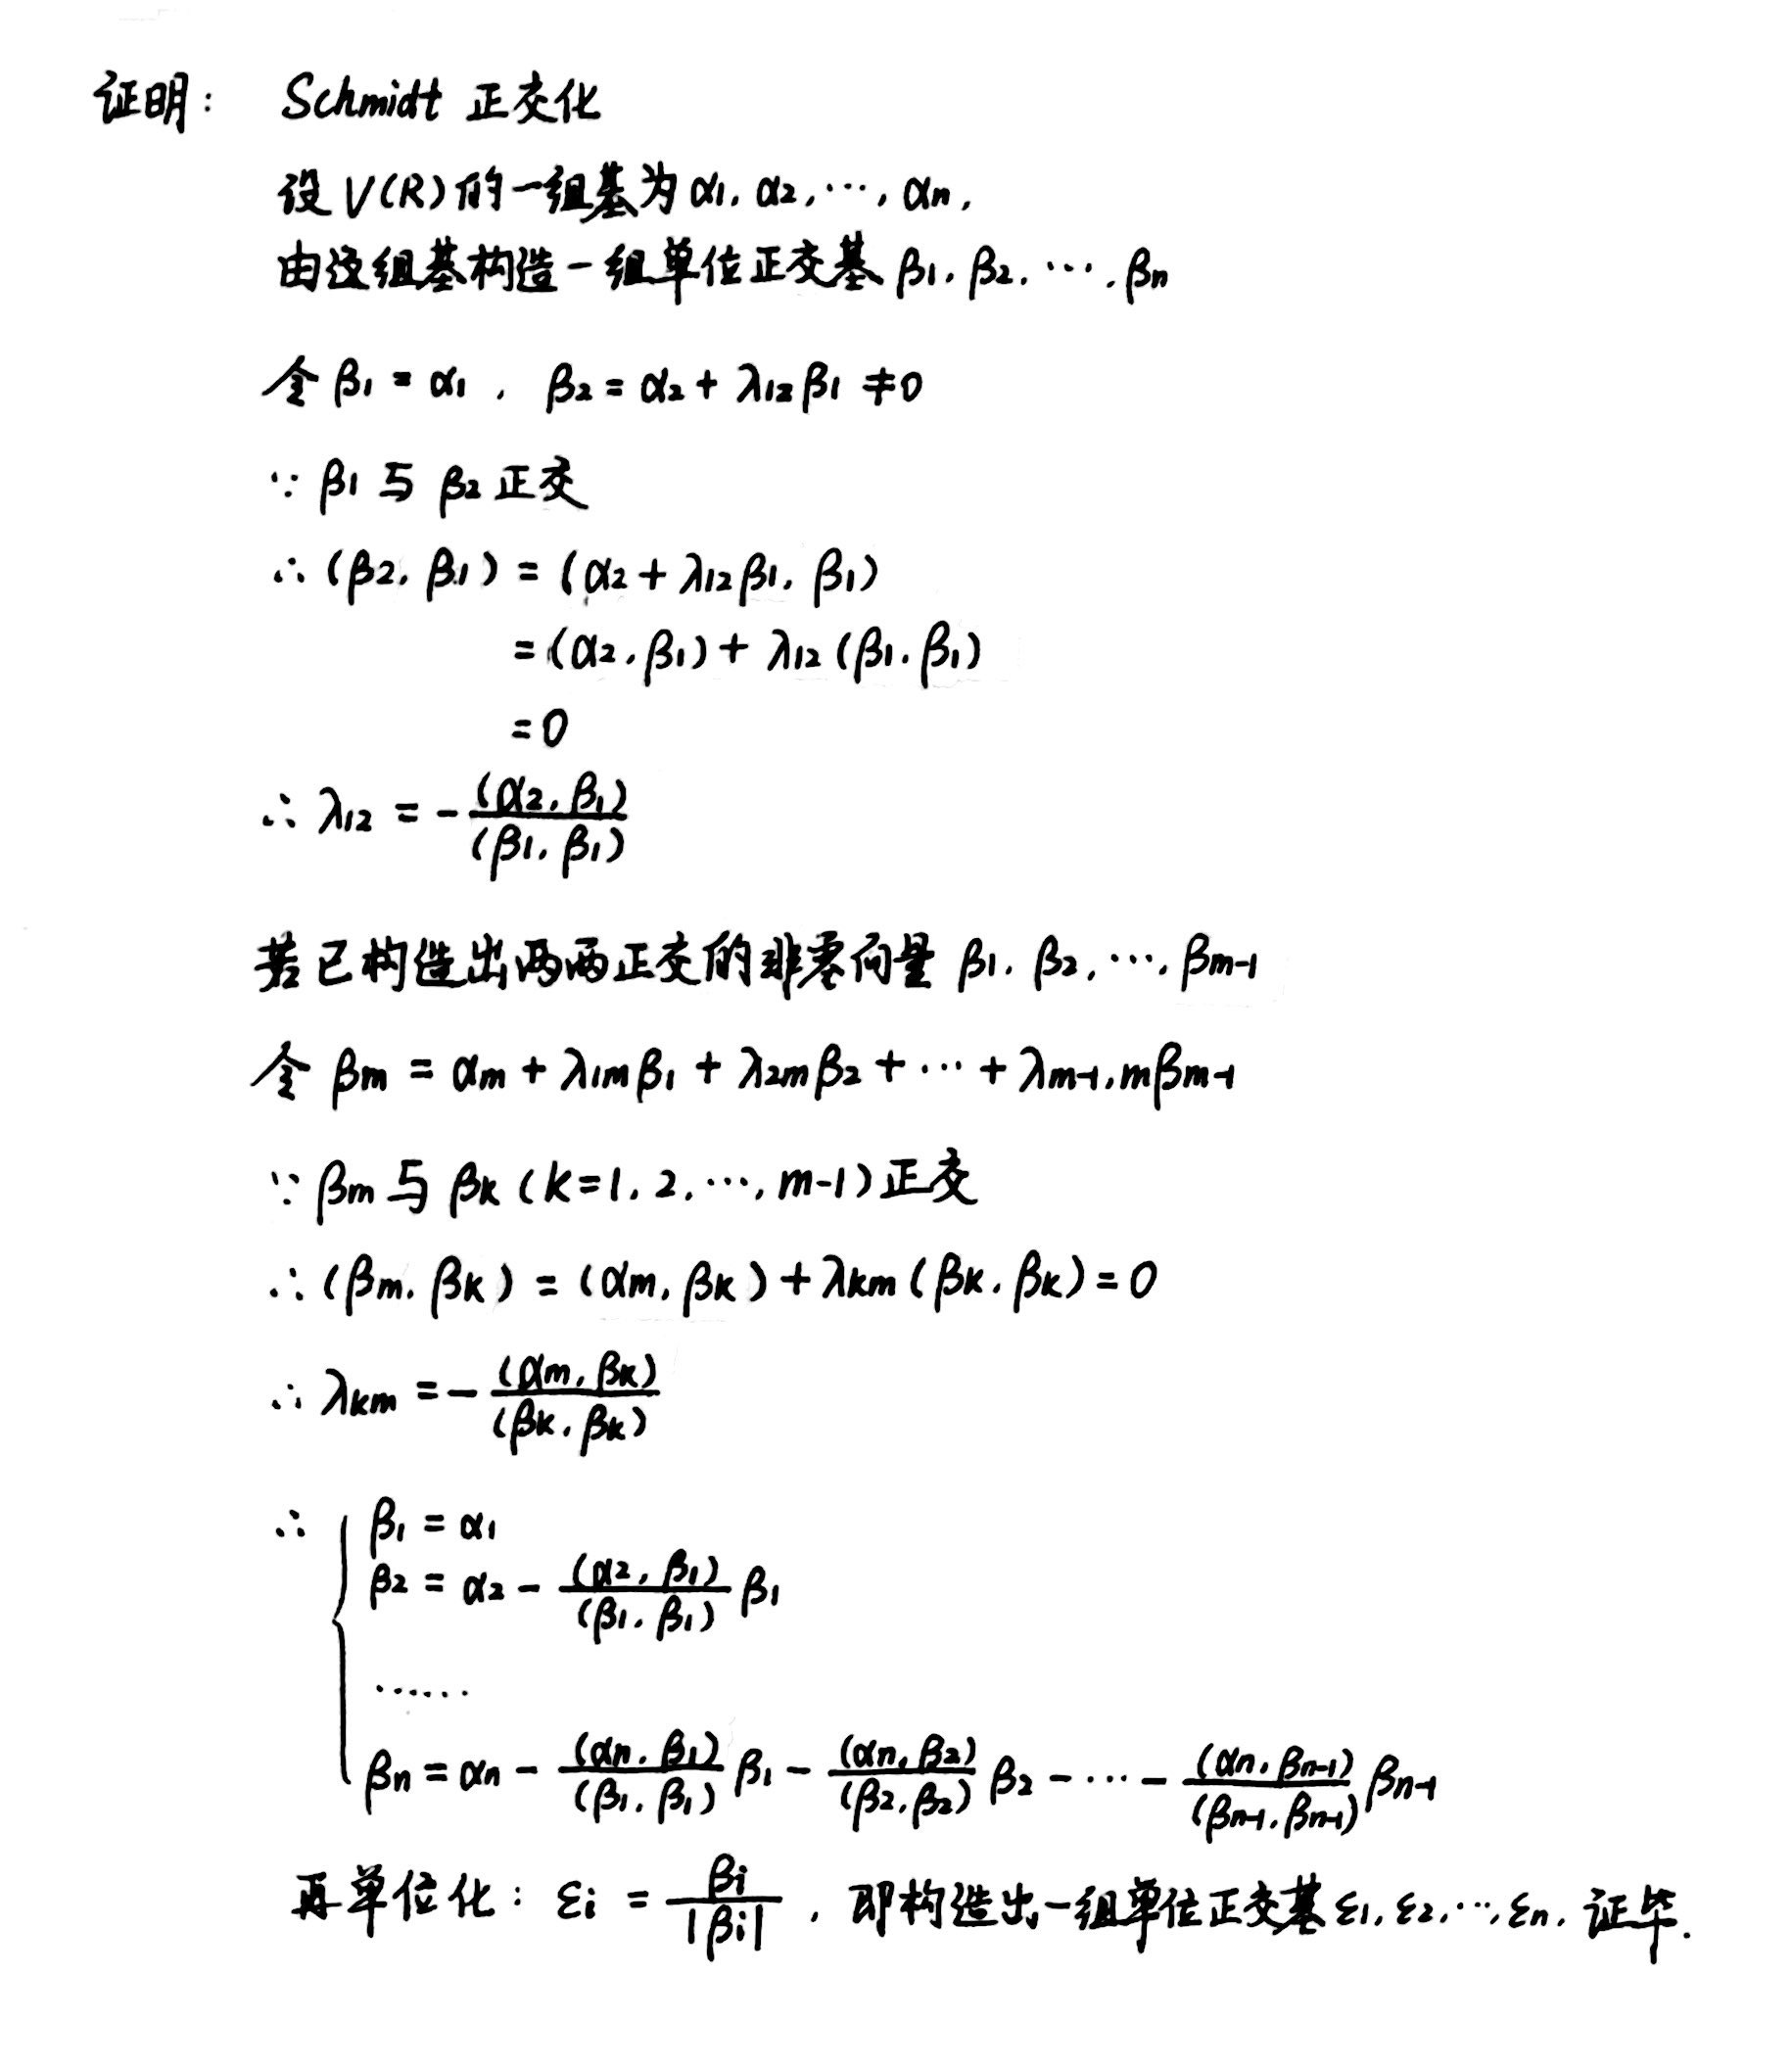 证明: Schmidt 正交化
设 V(R) 的一组基为 α1, α2, ···, αn,
由这组基构造一组单位正交基 β1, β2, ···, βn
令 β1 = α1 , β2 = α2 + λ12β1 ≠ 0
∵ β1 与 β2 正交
∴ (β2, β1) = (α2 + λ12β1, β1)
= (α2, β1) + λ12 (β1, β1)
= 0
∴ λ12 = - (α2, β1) / (β1, β1)
若已构造出两两正交的非零向量 β1, β2, ···, βm-1
令 βm = αm + λ1mβ1 + λ2mβ2 + ··· + λm-1,mβm-1
∵ βm 与 βk (k=1, 2, ···, m-1) 正交
∴ (βm, βk) = (αm, βk) + λkm (βk, βk) = 0
∴ λkm = - (αm, βk) / (βk, βk)
∴ { β1 = α1
β2 = α2 - (α2, β1) / (β1, β1) β1
······
βn = αn - (αn, β1) / (β1, β1) β1 - (αn, β2) / (β2, β2) β2 - ··· - (αn, βn-1) / (βn-1, βn-1) βn-1
再单位化: εi = βi / |βi| , 即构造出一组单位正交基 ε1, ε2, ···, εn, 证毕.